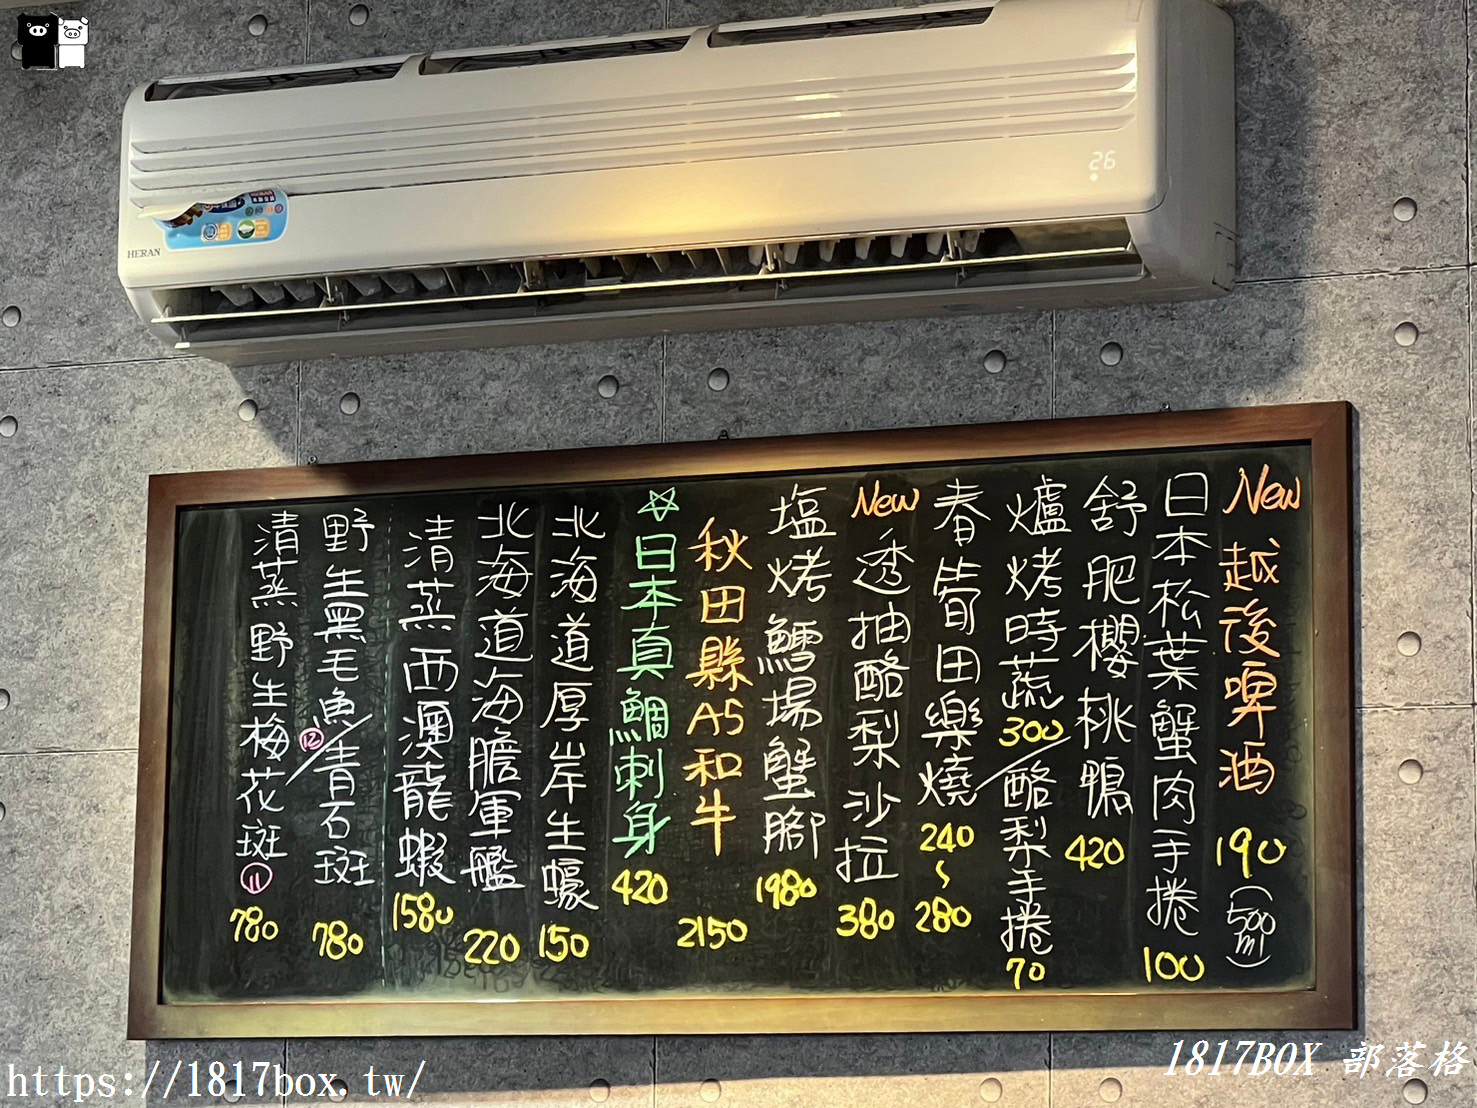 26
HERAN
New 越後啤酒 190 (500ml)
日本松葉蟹肉手捲 100
舒肥櫻桃鴨 420
爐烤時蔬 300/酪梨手捲 70
春筍田樂燒 240~280
New 透抽酪梨沙拉 380
塩烤鱈場蟹腳 1980
秋田縣A5和牛 2150
☆日本真鯛刺身 420
北海道厚岸生蠔 150
北海道海膽軍艦 220
清蒸西澳龍蝦 1580
野生黑毛魚⑫/青石斑 780
清蒸野生梅花斑⑪ 780
https://1817box.tw/
1817BOX 部落格